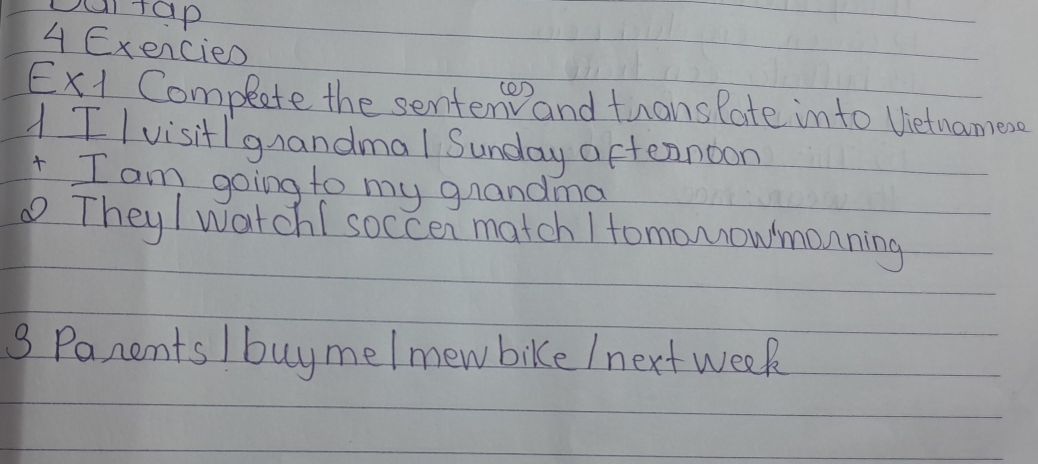 Bài tập
4 Exencies
Ex1 Complete the sentenv(ces) and translate into Vietnamese
1 I / visit / grandma / Sunday afternoon
+ I am going to my grandma
2 They / watch / soccer match / tomorrow morning
3 Parents / buy me / mew bike / next week